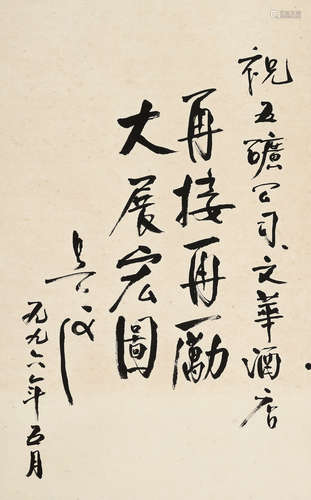 祝五礦公司、文華酒店
再接再勵
大展宏圖
吳波
一九九六年五月